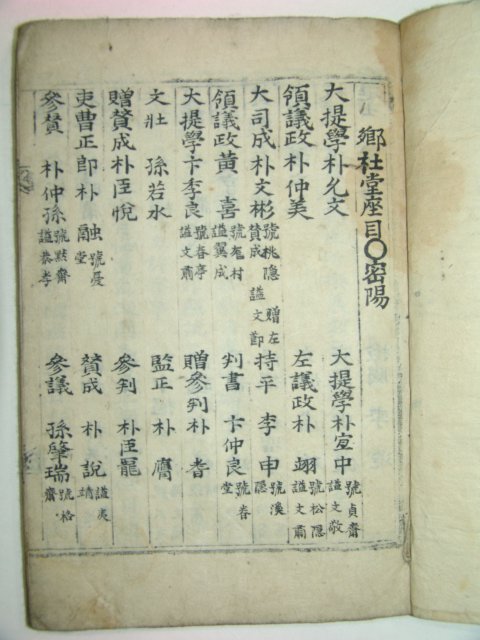 鄕社堂座目○密陽
大提學朴允文 大提學朴宜中 號貞齋 諡文敬
領議政朴仲美 左議政朴翊 號松隱 諡文肅
大司成朴文彬 號桃隱 贈左贊成 諡文節 持平 李申 號溪隱
領議政黃喜 號厖村 諡翼成 判書 卞仲良 號春堂
大提學卞季良 號春亭 諡文肅 贈參判朴耆
文壯 孫若水 監正 朴膺
贈贊成朴臣悅 參判 朴臣龍
吏曹正郞朴融 號憂堂 贊成 朴說 諡夷靖
參贊 朴仲孫 號默齋 諡恭孝 參議 孫肇瑞 號格齋